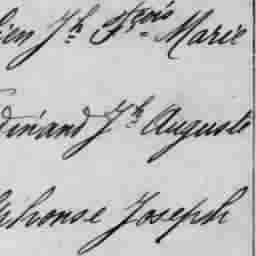 ien Jh Fçois Marie
dinand Jh Auguste
lphonse Joseph